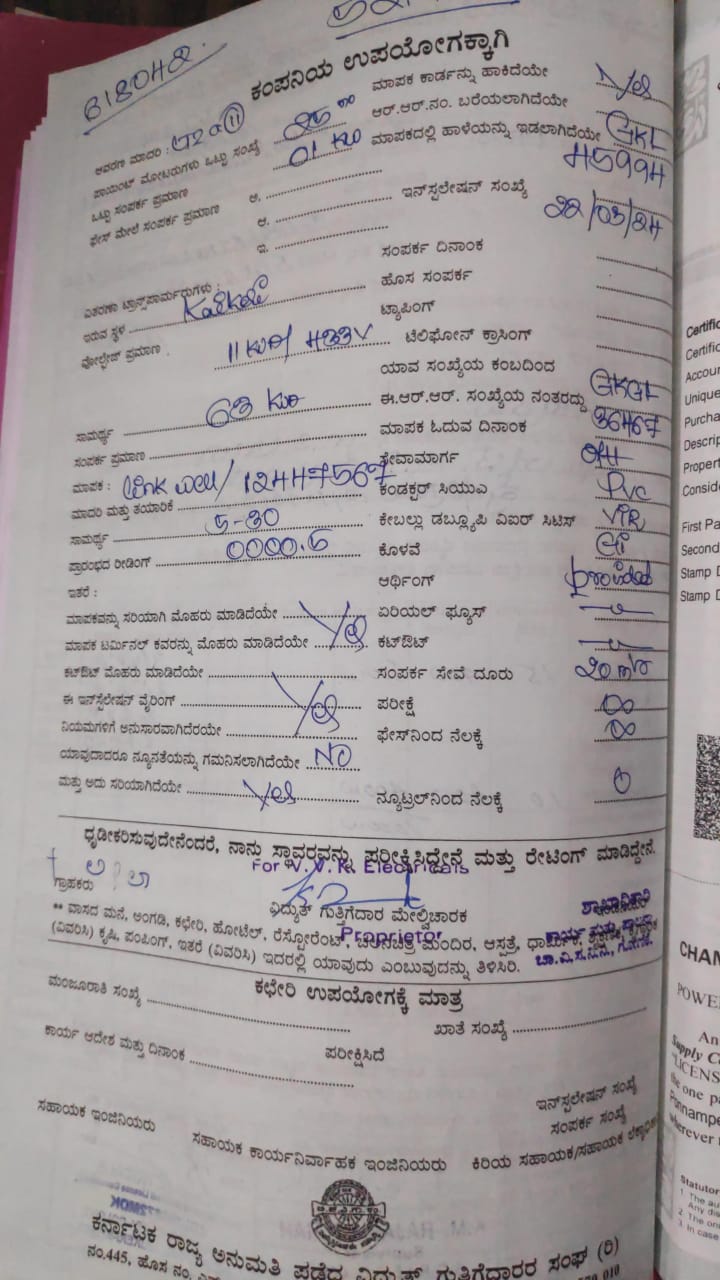 618042
ಕಂಪನಿಯ ಉಪಯೋಗಕ್ಕಾಗಿ
ಮಾಪಕ ಕಾರ್ಡನ್ನು ಹಾಕಿದೆಯೇ Yes
ಆವರಣ ಮಾದರಿ : ಆರ್.ಆರ್.ನಂ. ಬರೆಯಲಾಗಿದೆಯೇ
ಪಾಯಿಂಟ್ ಮೋಟರುಗಳು ಒಟ್ಟು ಸಂಖ್ಯೆ ಮಾಪಕದಲ್ಲಿ ಹಾಳೆಯನ್ನು ಇಡಲಾಗಿದೆಯೇ GKL
ಒಟ್ಟು ಸಂಪರ್ಕ ಪ್ರಮಾಣ 01 KW 45994
ಫೇಸ್ ಮೇಲೆ ಸಂಪರ್ಕ ಪ್ರಮಾಣ ಅ. ಇನ್‌ಸ್ಟಲೇಷನ್ ಸಂಖ್ಯೆ
ಆ. 22/03/24
ಇ. ಸಂಪರ್ಕ ದಿನಾಂಕ
ವಿತರಣಾ ಟ್ರಾನ್ಸ್‌ಪಾರ್ಮರುಗಳು : ಹೊಸ ಸಂಪರ್ಕ
ಇರುವ ಸ್ಥಳ ಟ್ಯಾಪಿಂಗ್
ವೋಲ್ಟೇಜ್ ಪ್ರಮಾಣ 433V ಟೆಲಿಫೋನ್ ಕ್ರಾಸಿಂಗ್
ಯಾವ ಸಂಖ್ಯೆಯ ಕಂಬದಿಂದ
ಸಾಮರ್ಥ್ಯ 63 ಈ.ಆರ್.ಆರ್. ಸಂಖ್ಯೆಯ ನಂತರದ್ದು GKGL
ಸಂಪರ್ಕ ಪ್ರಮಾಣ ಮಾಪಕ ಓದುವ ದಿನಾಂಕ 36467
ಮಾಪಕ : Link well/ 12447567 ಸೇವಾಮಾರ್ಗ OH
ಮಾದರಿ ಮತ್ತು ತಯಾರಿಕೆ ಕಂಡಕ್ಟರ್ ಸಿಯುಎ PVC
ಸಾಮರ್ಥ್ಯ 5-30 ಕೇಬಲ್ಲು ಡಬ್ಲ್ಯೂಪಿ ವಿಐಆರ್ ಸಿಟಿಸ್ VIR
ಪ್ರಾರಂಭದ ರೀಡಿಂಗ್ 0000.5 ಕೊಳವೆ GI
ಇತರೆ : ಆರ್ಥಿಂಗ್ provided
ಮಾಪಕವನ್ನು ಸರಿಯಾಗಿ ಮೊಹರು ಮಾಡಿದೆಯೇ ಏರಿಯಲ್ ಫ್ಯೂಸ್
ಮಾಪಕ ಟರ್ಮಿನಲ್ ಕವರನ್ನು ಮೊಹರು ಮಾಡಿದೆಯೇ Yes ಕಟ್‌ಔಟ್
ಕಟ್‌ಔಟ್ ಮೊಹರು ಮಾಡಿದೆಯೇ ಸಂಪರ್ಕ ಸೇವೆ ದೂರು 20 mtr
ಈ ಇನ್‌ಸ್ಟಲೇಷನ್ ವೈರಿಂಗ್ Yes ಪರೀಕ್ಷೆ ∞
ನಿಯಮಗಳಿಗೆ ಅನುಸಾರವಾಗಿದೆರಯೇ ಫೇಸ್‌ನಿಂದ ನೆಲಕ್ಕೆ ∞
ಯಾವುದಾದರೂ ನ್ಯೂನತೆಯನ್ನು ಗಮನಿಸಲಾಗಿದೆಯೇ NO
ಮತ್ತು ಅದು ಸರಿಯಾಗಿದೆಯೇ Yes ನ್ಯೂಟ್ರಲ್‌ನಿಂದ ನೆಲಕ್ಕೆ 0
ಧೃಡೀಕರಿಸುವುದೇನೆಂದರೆ, ನಾನು ಸ್ಥಾವರವನ್ನು ಪರೀಕ್ಷಿಸಿದ್ದೇನೆ ಮತ್ತು ರೇಟಿಂಗ್ ಮಾಡಿದ್ದೇನೆ.
For V.V.K. Electricals
ಗ್ರಾಹಕರು ವಿದ್ಯುತ್ ಗುತ್ತಿಗೆದಾರ ಮೇಲ್ವಿಚಾರಕ ಶಾಖಾಧಿಕಾರಿ
Proprietor
** ವಾಸದ ಮನೆ, ಅಂಗಡಿ, ಕಛೇರಿ, ಹೋಟೆಲ್, ರೆಸ್ಟೋರೆಂಟ್, ಚಲನಚಿತ್ರ ಮಂದಿರ, ಆಸ್ಪತ್ರೆ,
(ವಿವರಿಸಿ) ಕೃಷಿ, ಪಂಪಿಂಗ್, ಇತರೆ (ವಿವರಿಸಿ) ಇದರಲ್ಲಿ ಯಾವುದು ಎಂಬುವುದನ್ನು ತಿಳಿಸಿರಿ.
ಕಛೇರಿ ಉಪಯೋಗಕ್ಕೆ ಮಾತ್ರ
ಮಂಜೂರಾತಿ ಸಂಖ್ಯೆ ಖಾತೆ ಸಂಖ್ಯೆ
ಕಾರ್ಯ ಆದೇಶ ಮತ್ತು ದಿನಾಂಕ ಪರೀಕ್ಷಿಸಿದೆ
ಇನ್‌ಸ್ಟಲೇಷನ್ ಸಂಖ್ಯೆ
ಸಂಪರ್ಕ ಸಂಖ್ಯೆ
ಸಹಾಯಕ ಇಂಜಿನಿಯರು ಸಹಾಯಕ ಕಾರ್ಯನಿರ್ವಾಹಕ ಇಂಜಿನಿಯರು ಕಿರಿಯ ಸಹಾಯಕ/ಸಹಾಯಕ
ಕರ್ನಾಟಕ ರಾಜ್ಯ ಅನುಮತಿ ಪಡೆದ ವಿದ್ಯುತ್ ಗುತ್ತಿಗೆದಾರರ ಸಂಘ (ರಿ)
ನಂ.445, ಹೊಸ ನಂ.
Certific
Accour
Unique
Purcha
Descrip
Propert
Consid
First Pa
Second
Stamp D
Stamp D
CHAN
POWE
An
Supply C
"LICENS
the one pa
Ponnampe
wherever
Statutor
1 The au
Any dis
2 The on
3 In case